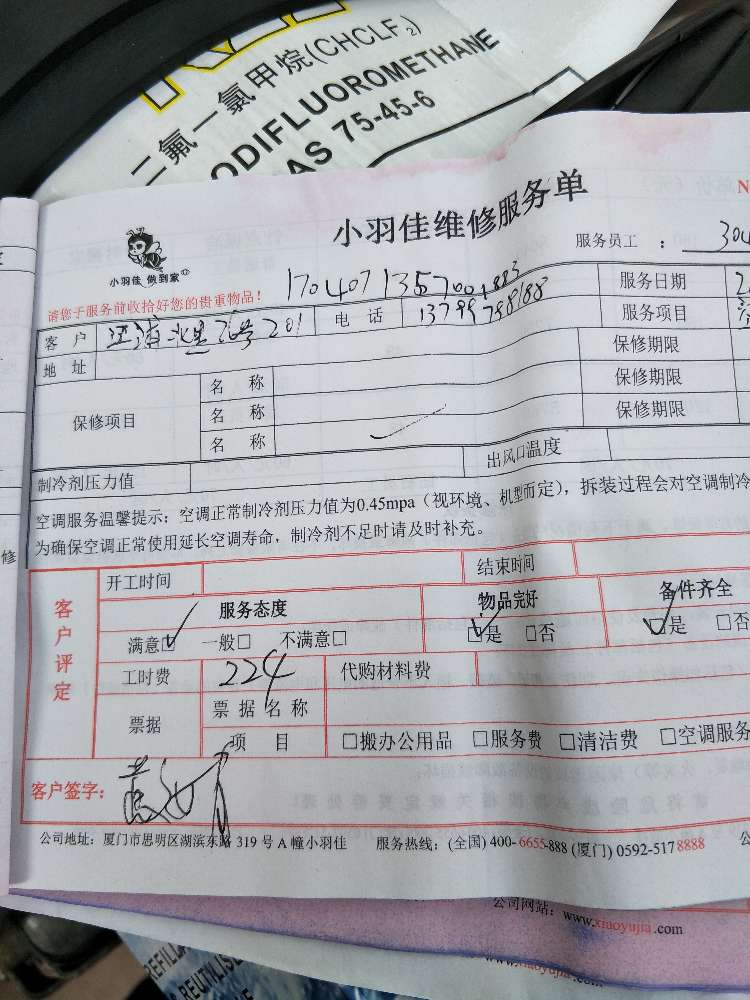 二氟一氯甲烷(CHCLF2)
ODIFLUOROMETHANE
AS 75-45-6
小羽佳维修服务单
N
小羽佳 做到家
服务员工 : 304
请您于服务前收拾好您的贵重物品!
客户 201 电话 13799798188 服务日期 2
地址 服务项目
保修项目 名称 保修期限
名称 保修期限
名称 保修期限
制冷剂压力值 出风口温度
空调服务温馨提示: 空调正常制冷剂压力值为0.45mpa(视环境、机型而定), 拆装过程会对空调制冷
为确保空调正常使用延长空调寿命, 制冷剂不足时请及时补充。
修
客户评定
开工时间 结束时间
服务态度 物品完好 备件齐全
满意☑ 一般□ 不满意□ ☑是 □否 ☑是 □否
工时费 224 代购材料费
票据 票据名称
项目 □搬办公用品 □服务费 □清洁费 □空调服务
客户签字:
公司地址: 厦门市思明区湖滨东路 319 号 A 幢小羽佳 服务热线: (全国) 400-6655-888 (厦门) 0592-517 8888 公
公司网站: www.xiaoyujia.com
www.xiaoyujia.com
REFILL
REUTILISE